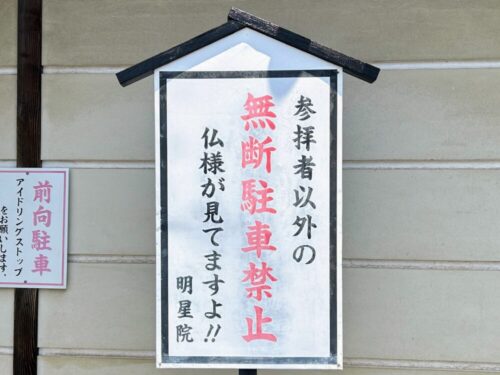 参拝者以外の
無断駐車禁止
仏様が見てますよ!!
明星院
前向駐車
アイドリングストップ
をお願いします。